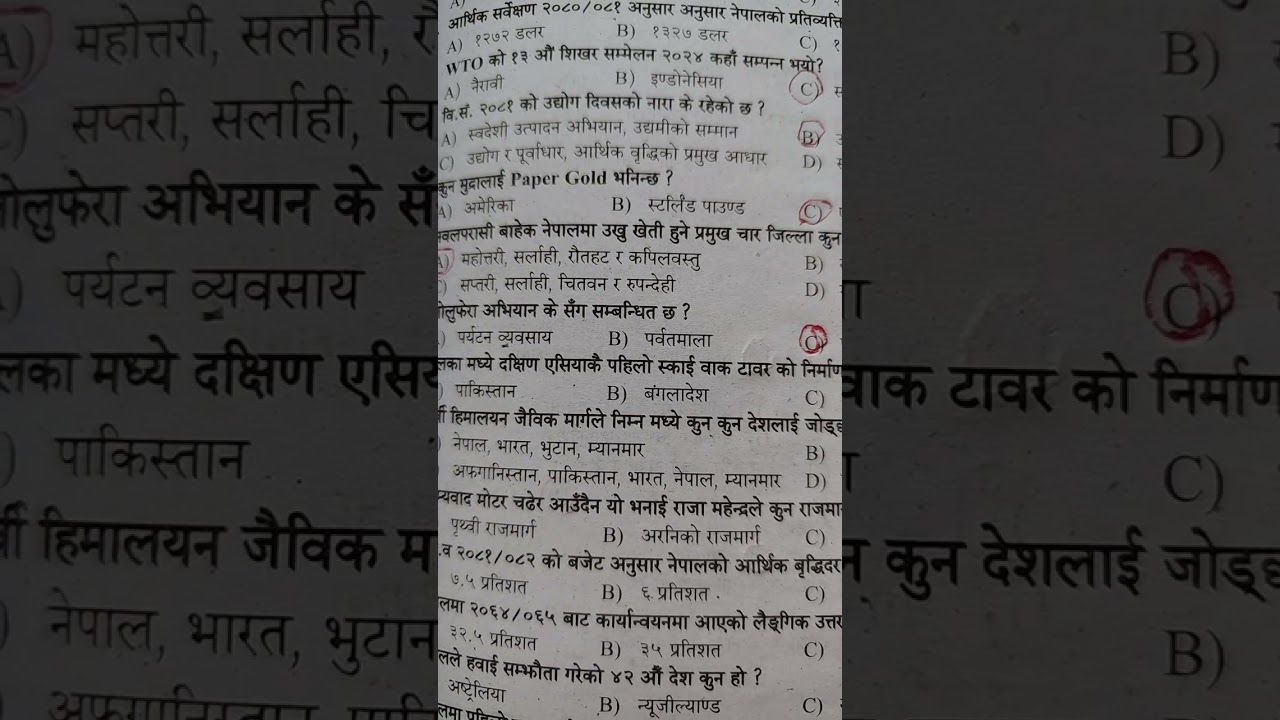 A)
आर्थिक सर्वेक्षण २०८०/०८१ अनुसार अनुसार नेपालको प्रतिव्यक्ति
A) १२७२ डलर B) १३२७ डलर C) १
WTO को १३ औं शिखर सम्मेलन २०२४ कहाँ सम्पन्न भयो?
A) नैरावी B) इण्डोनेसिया C)
वि.सं. २०८१ को उद्योग दिवसको नारा के रहेको छ ?
A) स्वदेशी उत्पादन अभियान, उद्यमीको सम्मान B)
C) उद्योग र पूर्वाधार, आर्थिक वृद्धिको प्रमुख आधार D)
कुन मुद्रालाई Paper Gold भनिन्छ ?
A) अमेरिका B) स्टर्लिंड पाउण्ड C)
वलपरासी बाहेक नेपालमा उखु खेती हुने प्रमुख चार जिल्ला कुन
A) महोत्तरी, सर्लाही, रौतहट र कपिलवस्तु B)
) सप्तरी, सर्लाही, चितवन र रुपन्देही D)
ोलुफेरा अभियान के सँग सम्बन्धित छ ?
) पर्यटन व्यवसाय B) पर्वतमाला C)
लका मध्ये दक्षिण एसियाकै पहिलो स्काई वाक टावर को निर्माण
) पाकिस्तान B) बंगलादेश C)
र्वी हिमालयन जैविक मार्गले निम्न मध्ये कुन कुन देशलाई जोड्छ
नेपाल, भारत, भुटान, म्यानमार B)
अफगानिस्तान, पाकिस्तान, भारत, नेपाल, म्यानमार D)
यवाद मोटर चढेर आउँदैन यो भनाई राजा महेन्द्रले कुन राजमा
पृथ्वी राजमार्ग B) अरनिको राजमार्ग C)
.व २०८१/०८२ को बजेट अनुसार नेपालको आर्थिक बृद्धिदर
७.५ प्रतिशत B) ६ प्रतिशत . C)
लमा २०६४/०६५ बाट कार्यान्वयनमा आएको लैङ्गिक उत्तर
३२.५ प्रतिशत B) ३५ प्रतिशत C)
लले हवाई सम्झौता गरेको ४२ औं देश कुन हो ?
अष्ट्रेलिया B) न्यूजील्याण्ड C)